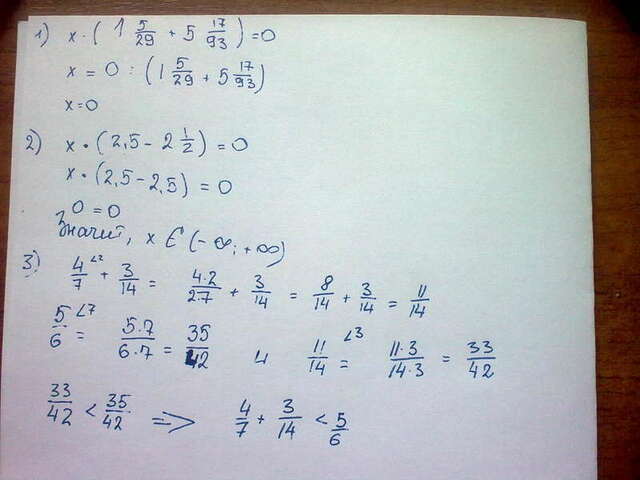 1) x · (1 5/29 + 5 17/93) = 0
x = 0 : (1 5/29 + 5 17/93)
x = 0
2) x · (2,5 - 2 1/2) = 0
x · (2,5 - 2,5) = 0
0 = 0
Значит, x ∈ (-∞; +∞)
3) 4/7 ∠2 + 3/14 = 4·2/2·7 + 3/14 = 8/14 + 3/14 = 11/14
5/6 ∠7 = 5·7/6·7 = 35/42 и 11/14 ∠3 = 11·3/14·3 = 33/42
33/42 < 35/42 => 4/7 + 3/14 < 5/6